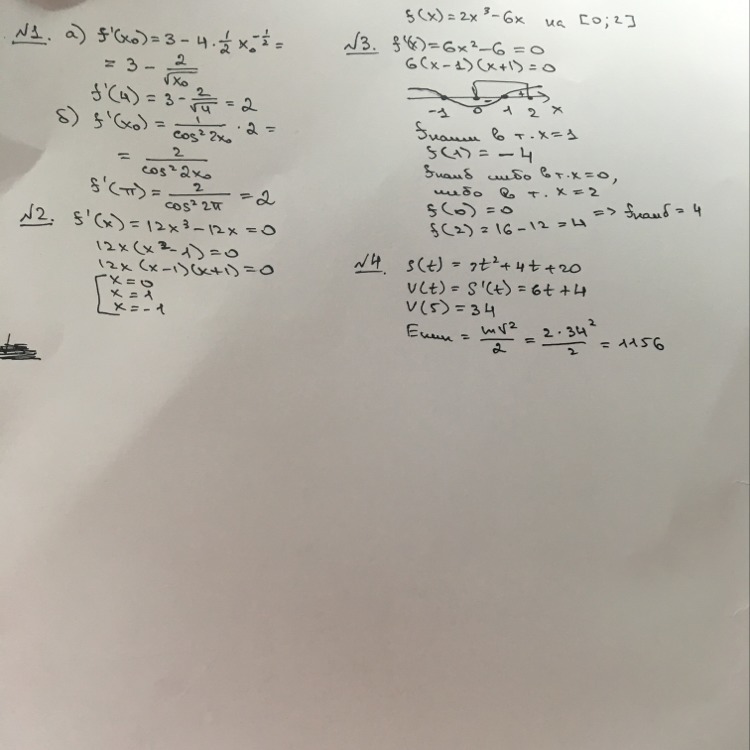 №1. а) f'(x₀) = 3 - 4 · 1/2 x₀^(-1/2) =
= 3 - 2/√x₀
f'(4) = 3 - 2/√4 = 2
б) f'(x₀) = 1/cos² 2x₀ · 2 =
= 2/cos² 2x₀
f'(π) = 2/cos² 2π = 2
№2. f'(x) = 12x³ - 12x = 0
12x (x² - 1) = 0
12x (x-1)(x+1) = 0
[ x = 0
x = 1
x = -1
f(x) = 2x³ - 6x на [0; 2]
№3. f'(x) = 6x² - 6 = 0
6(x-1)(x+1) = 0
- +
-1 0 1 2 x
fнаим в т. x = 1
f(1) = -4
fнаиб либо в т. x = 0,
либо в т. x = 2
f(0) = 0
f(2) = 16 - 12 = 4 => fнаиб = 4
№4. s(t) = t² + 4t + 20
v(t) = s'(t) = 6t + 4
v(5) = 34
Eкин = mv²/2 = 2 · 34²/2 = 1156